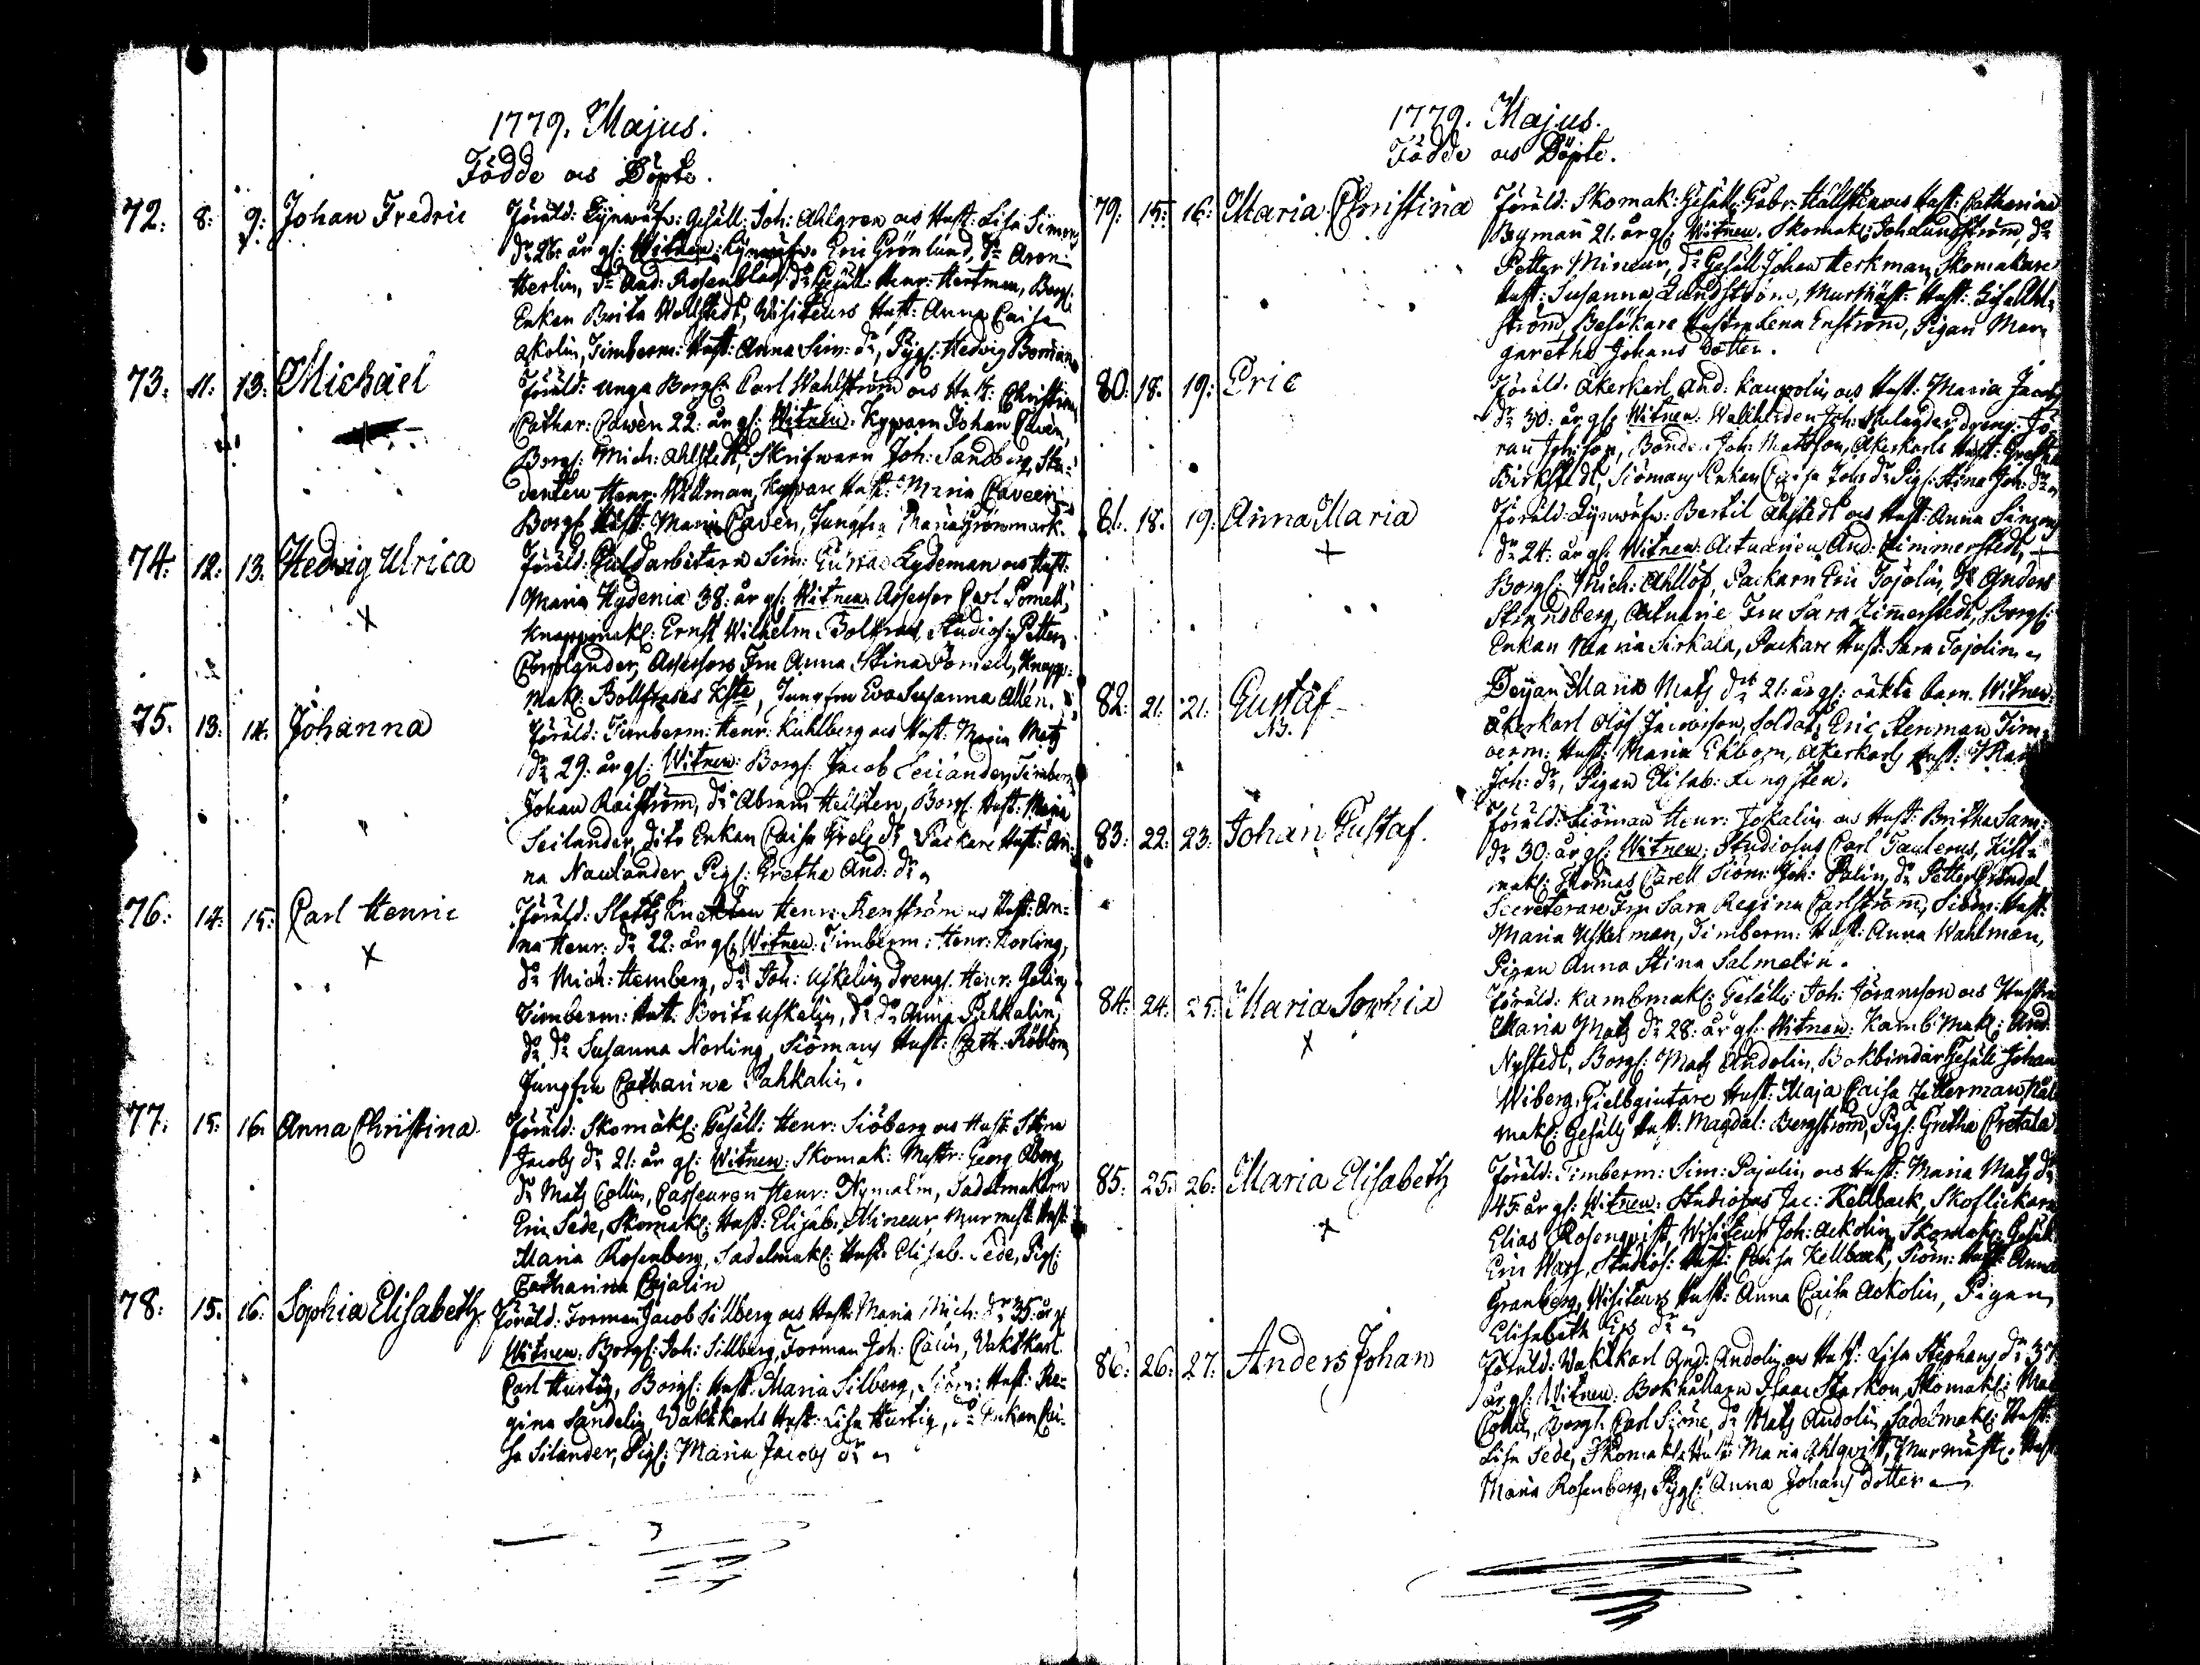 1779. Majus.
Födde os Döpte.
72. 8: 9: Johan Fredric Föräld: Lijnwäfv: Gesäll: Joh: Ahlgren os Hust: Lisa Simons
dr 26: år gl: Witnen: Lijnwäfv. Eric Grönlund, do Aron
Herlin, do And: Rosenblad, do Gesäll: Henr: Hertman, Borgl:
Enkan Brita Wallstedt, Visiteurs Hust: Anna Caisa
Askolin, Timberm: Hust: Anna Sim: dr, Pigl: Hedvig Boman
73. 11: 13: Michaël Föräld: unga Borgl: Carl Wahlström os Hust: Christina
Cathar: Cawén 22: år gl: Witnen. Kypparn Johan Cavén,
Borgl: Mich: Ahlstedt, Skrifwarn Joh: Sandberg, Stu-
denten Henr: Widman, Kyppare Hust: Maria Caveen
Borgl: Hust: Maria Cavén, Jungfru Maria Grönmark.
74. 12. 13. Hedvig Ulrica Föräld: Guldarbetarn Sim: Gustac Lydeman os Hust:
x Maria Hydenia 38: år gl: Witnen Assessor Carl Pomell,
Knappmakl: Ernst Wilhelm Boltras, Studios: Petter
Assessors Fru Anna Stina Pomell, Knapp-
makl: Jungfru Eva Susanna Allén.
75. 13. 14. Johanna Föräld: Timberm: Henr: Kuhlberg os Hust: Maria Mats
dr 29: år gl: Witnen: Borgl: Jacob Seilander, Timberm
Johan Raiström, do Abram Hellsten, Borgl: Hust: Maja
Seilander, dito Enkan Caisa Grels dr Packare Hust: An-
na Naulander, Pigl: Gretha And: dr
76: 14: 15: Carl Henric Föräld: Slotts Knekten Henr: Renström os Hust: An-
x na Henr: dr 22: år gl: Witnen: Timberm: Henr: Korling,
do Mich: Hemberg, do Joh: Uskelin, drengl: Henr: Gelin,
Timberm: Hust: Brita Uskelin, do do Anna Pahkalin,
do do Susanna Norling, Siömans Hust: Cath: Röblom,
Jungfru Catharina Pahkalin.
77. 15: 16. Anna Christina. Föräld: Skomakl: Gesäll: Henr: Siöberg os Hust Stina
Jacobs dr 21: år gl: Witnen: Skomak: Mestr: Georg Öberg,
do Mats Collin, Casseuren Henr: Nymalm, Sadelmakarn
Eric Sede, Skomakl: Hust: Elisab: Mineur, Murmest: Hust:
Maria Rosenberg, Sadelmakl: Hust: Elisab. Sede, Pigl:
Catharina Cajalin
78: 15: 16: Sophia Elisabeth. Föräld: Forman Jacob Sillberg os Hust: Maria Mich: dr 35: år gl
Witnen: Borgl: Joh: Sillberg, Forman Joh: Calin, Vaktkarl
Carl Hurtig, Borgl: Hust: Maria Silberg, Siöm: Hust: Re-
gina Sandelin, Vaktkarls Hust: Lisa Hurtig, do Enkan Cai-
sa Silander, Pigl: Maria Jacobs dr
1779. Majus.
Födde os Döpte.
79. 15: 16: Maria Christina Föräld: Skomak: Gesäll: Gabr: Hällsten os Hust: Catharina
Byman 21: år gl: Witnen. Skomakl: Joh Lundström, do
Petter Mineur, do Gesäll Johan Herkman, Skomakare
Hust: Susanna Lundström, Murmäst: Hust:
ström, Besökare Hustru Lena Enström, Pigan Mar-
garetha Johans Dotter.
80. 18. 19: Eric Föräld: Åkerkarl And: Kaupolin os Hust: Maria Jacobs
dr 30: år gl: Witnen: dreng: Jö-
ran Joh: son, Bonde: Joh: Matsson, Åkerkarls Hust: Gretha
Birkstedt, Siömans Enkan Caisa Joh: dr Pigl: Stina Joh: dr
81. 18. 19: Anna Maria Föräld: Lijnwäfv: Bertil Ahlstedt os Hust: Anna Simons
+ dr 24: år gl: Witnen: Actuarien And: Zimmerstedt,
Borgl: Mich: Ahllöf, Packarn Eric Tojolin, do Anders
Strandberg, Actuarie Fru Sara Zimerstedt, Borgl:
Enkan Maria Sirkala, Packare Hust: Sara Tojolin
82. 21. 21: Gustaf Deijan Maria Mats dr 21: år gl: oäkta barn. Witnen:
NB. Åkerkarl Olof Jacobsson, Soldat: Eric Stenman, Tim-
berm: Hust: Maria Ekbom, Åkerkarls Hust:
Joh: dr, Pigan Elisab: Lengsten.
83. 22: 23: Johan Gustaf. Föräld: Siöman Henr: Jokalin os Hust: Britha Sam:
dr 30: år gl: Witnen: Studiosus Carl Taulerus, Kist-
makl: Thomas Carell Siöm: Joh: Palin, do Petter Gröndal
Secreterare Fru Sara Regina Carlström, Siöm: Hust:
Maria Uskelman, Timberm: Hust: Anna Wahlman,
Pigan Anna Stina Salmelin.
84. 24: 25: Maria Sophia Föräld: Kambmakl: Gesäll: Joh: Göransson os Hustru
x Maria Mats dr 28: år gl: Witnen: Kamb Makl: And:
Nystedt, Borgl: Mats Andolin, Bokbindar Gesäll Johan
Wiberg, Gielbgiutare Hust: Maja Caisa Zellerman,
makl: Gesälls Hust: Magdal: Bergström, Pigl: Gretha Cretala
85. 25: 26: Maria Elisabeth Föräld: Timberm: Sim: Pajulin os Hust: Maria Mats dr
x 45 år gl: Witnen: Studiosus Jac: Kellback, Skoflickarn
Elias Rosenqvist, Visiteur Joh: Askolin, Skomakl: Gesäll
Eric Wass, Studios: Hust: Caisa Kellback, Siöm: Hust: Anna
Granberg, Visiteurs Hust: Anna Caisa Askolin, Pigan
Elisabeth dr
86: 26: 27: Anders Johan Föräld: Vaktkarl And: Andolin os Hust: Lisa Stephans dr 37
år gl: Witnen: Bokhållarn Isaac Starkou, Skomakl: Mats
Collin, Borgl: Carl Sione, do Mats Andolin, Sadelmakl: Hust:
Lisa Sede, Skomakl: Hust: Maria Ahlqvist, Murmäst: Hust
Maria Rosenberg, Pigl: Anna Johans dotter